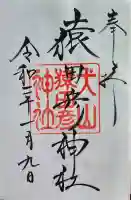 奉拝
猿田彦神社
犬山
猿田彦
神社
令和三年一月九日